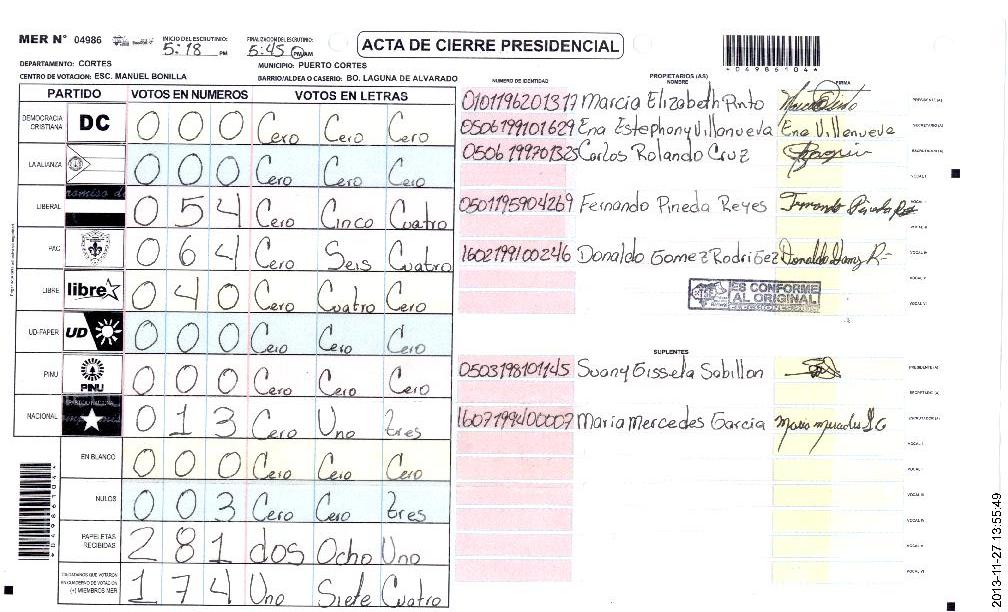 MER N° 04986
INICIO DEL ESCRUTINIO: 5:18 PM
FINALIZACION DEL ESCRUTINIO: 5:45 PM/AM
ACTA DE CIERRE PRESIDENCIAL
*04986104*
DEPARTAMENTO: CORTES
MUNICIPIO: PUERTO CORTES
CENTRO DE VOTACION: ESC. MANUEL BONILLA
BARRIO/ALDEA O CASERIO: BO. LAGUNA DE ALVARADO
PARTIDO VOTOS EN NUMEROS VOTOS EN LETRAS
DEMOCRACIA CRISTIANA DC 0 0 0 Cero Cero Cero
LA ALIANZA 0 0 0 Cero Cero Cero
LIBERAL 0 5 4 Cero Cinco Cuatro
PAC 0 6 4 Cero Seis Cuatro
LIBRE libre 0 4 0 Cero Cuatro Cero
UD-FAPER UD 0 0 0 Cero Cero Cero
PINU PINU 0 0 0 Cero Cero Cero
NACIONAL 0 1 3 Cero Uno tres
EN BLANCO 0 0 0 Cero Cero Cero
NULOS 0 0 3 Cero Cero tres
PAPELETAS RECIBIDAS 2 8 1 dos Ocho Uno
CIUDADANOS QUE VOTARON EN CUADERNO DE VOTACION (+) MIEMBROS MER 1 7 4 Uno Siete Cuatro
NUMERO DE IDENTIDAD PROPIETARIOS (AS) NOMBRE FIRMA
0101196201317 Marcia Elizabeth Pinto PRESIDENTE(A)
0506199101629 Ena Estephony Villanueva Ena Villanueva SECRETARIO(A)
0506199701325 Carlos Rolando Cruz ESCRUTADOR(A)
VOCAL I
0501195904269 Fernando Pineda Reyes Fernando Pineda R VOCAL II
VOCAL III
1602199100246 Donaldo Gomez Rodriguez Donaldo Gomz R- VOCAL IV
VOCAL V
VOCAL VI
ES CONFORME
AL ORIGINAL
SUPLENTES
0503198101145 Suany Gissela Sabillon PRESIDENTE (A)
SECRETARIO (A)
1607199400007 Maria Mercedes Garcia Maria Mercedes G ESCRUTADOR (A)
VOCAL I
VOCAL II
VOCAL III
VOCAL IV
VOCAL V
VOCAL VI
*04986104*
2013-11-27 13:55:49